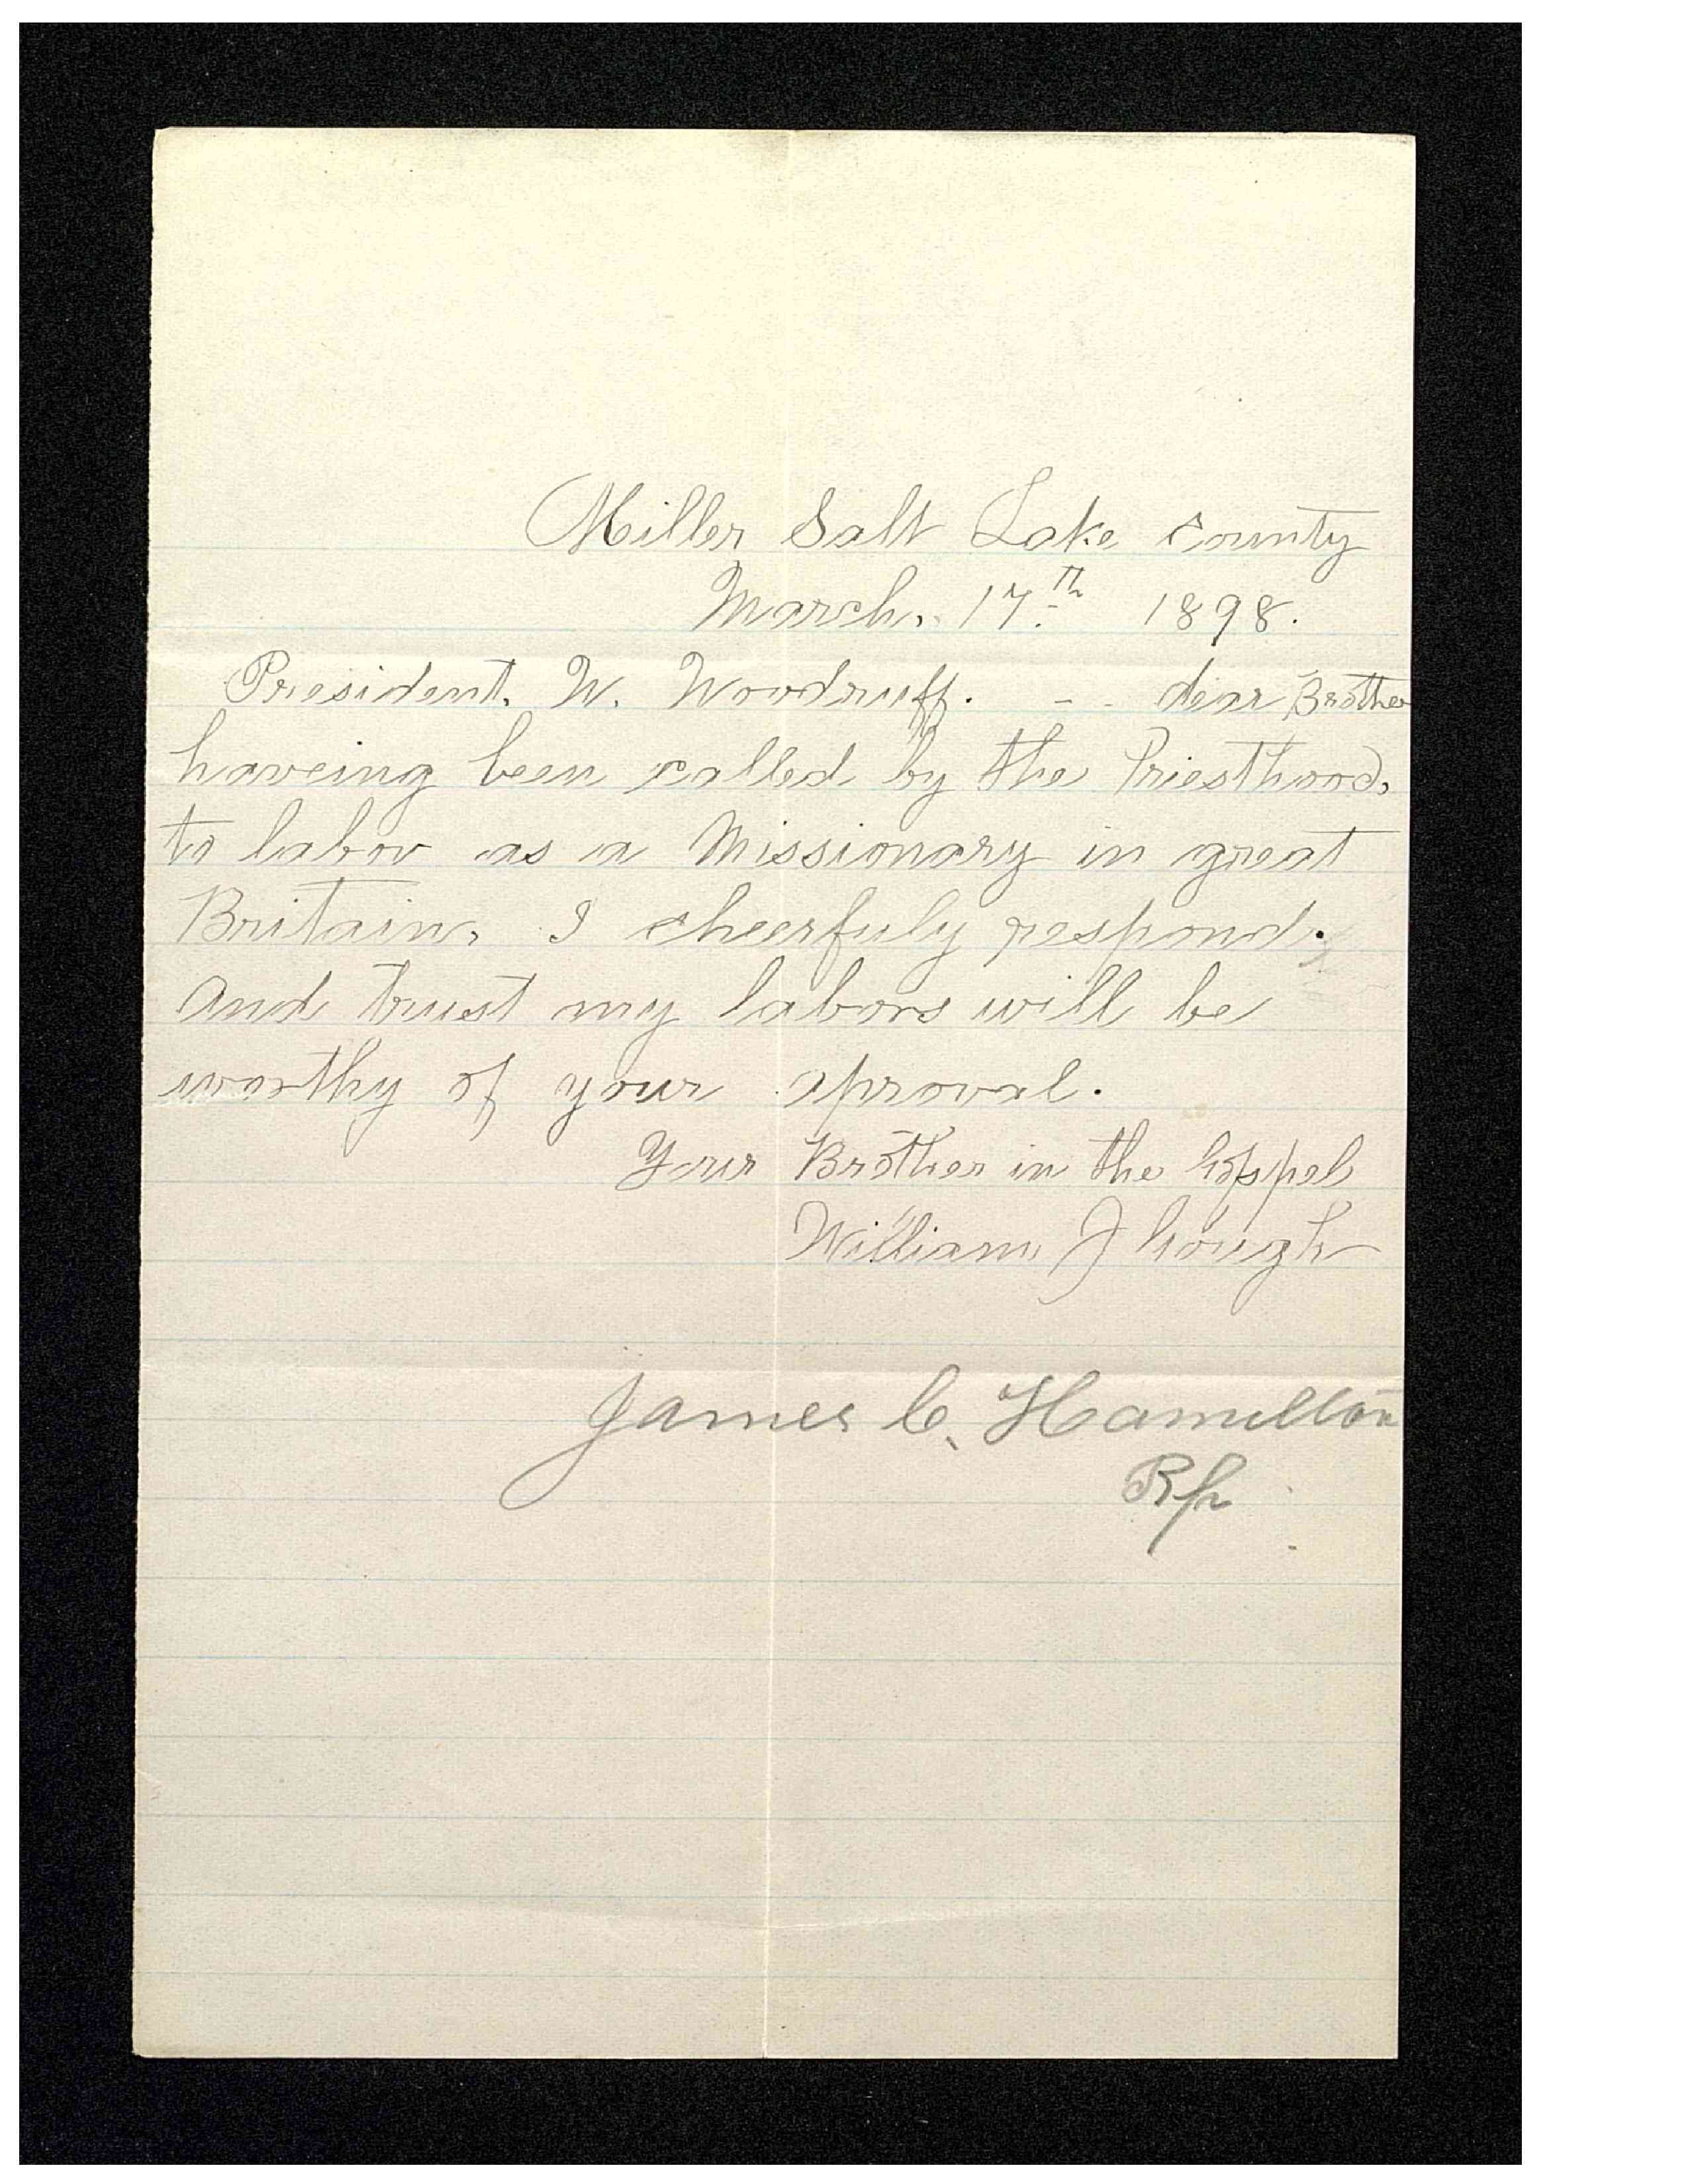 Miller Salt Lake county
March. 17th 1898.
President. W. Woodruff. - - dear Brother
haveing been called by the Priesthood,
to labor as a Missionary in great
Britain, I cheerfuly respond.
And trust my labors will be
worthy of your aproval.
Your Brother in the Gospel
William J Gough
James C. Hamilton
Bp